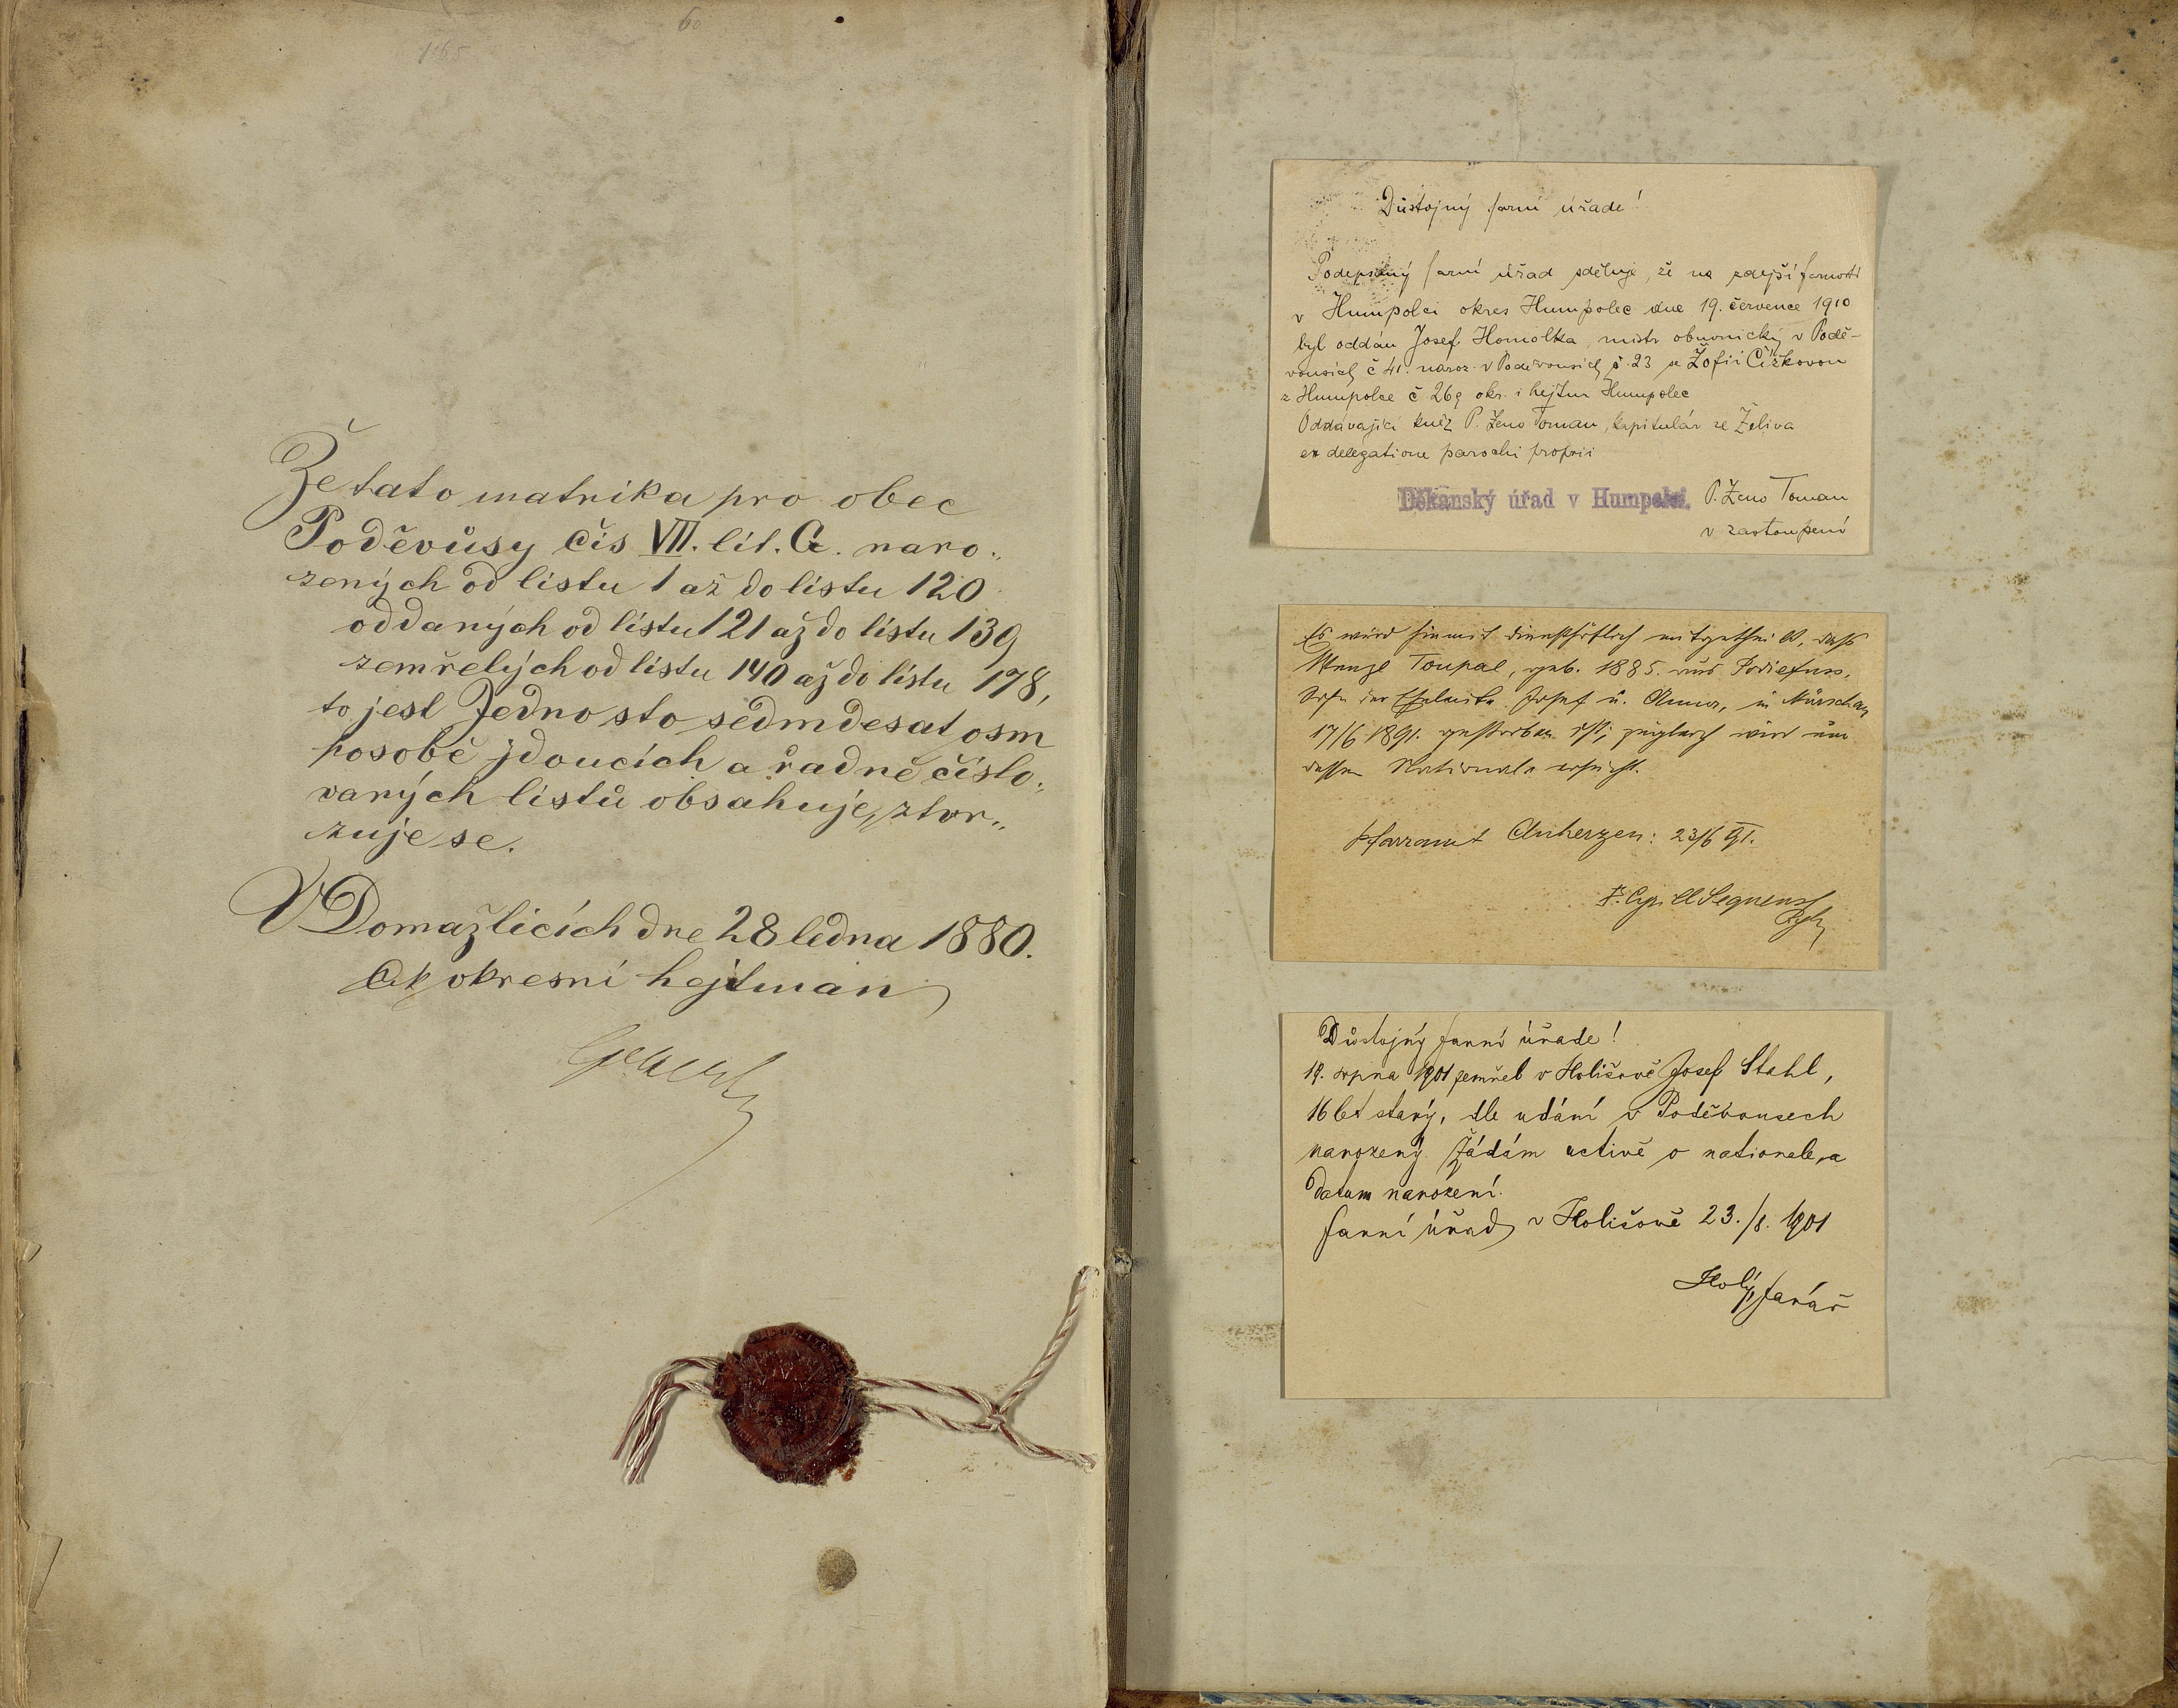 165
60
Že tato matrika pro obec
Poděvůsy čís VII. lit. G. naro„
zených od listu 1 až do listu 120
oddaných od listu 121 až do listu 139
zemřelých od listu 140 až do listu 178,
to jest Jedno sto sedmdesat osm
posobě jdoucích a řadně číslo„
vaných listů obsahuje, ztvr„
zuje se.
V Domažlicích dne 28 ledna 1880.
C.k. okresní hejtman
Důstojný farní úřade!
Podepsaný farní úřad sděluje, že na zdejší farnosti
v Humpolci okres Humpolec dne 19. července 1910
byl oddán Josef Homolka, mistr obuvnický v Podě-
vousích č 41. naroz. v Poděvousích č. 23 se Žofií Čížkovou
z Humpolce č 269 okr. i hejtm Humpolec
Oddávající kněz P. Zeno Toman, kapitulár ze Želiva
ex delegatione parochi proprii
Děkanský úřad v Humpolci.
P. Zeno Toman
v zastoupení
Es wird hiemit dienstfreundlich mitgetheilt, daß
Wenzl Toupal, geb. 1885. aus Podiefuss,
Sohn der Eheleute Josef u. Anna, in Nürschan
17/6 1891. gestorben ist; zugleich wird um
dessen Nationale ersucht.
Pfarramt Auherzen: 23/6 91.
P. Cyrill Seguens
Důstojný farní úřade!
19. srpna 1901 zemřel v Holišově Josef Stahl,
16 let starý, dle udání v Poděvousech
narozený. Žádám uctivě o nationale, a
datum narození.
farní úřad v Holišově 23./8. 1901
Holý, farář